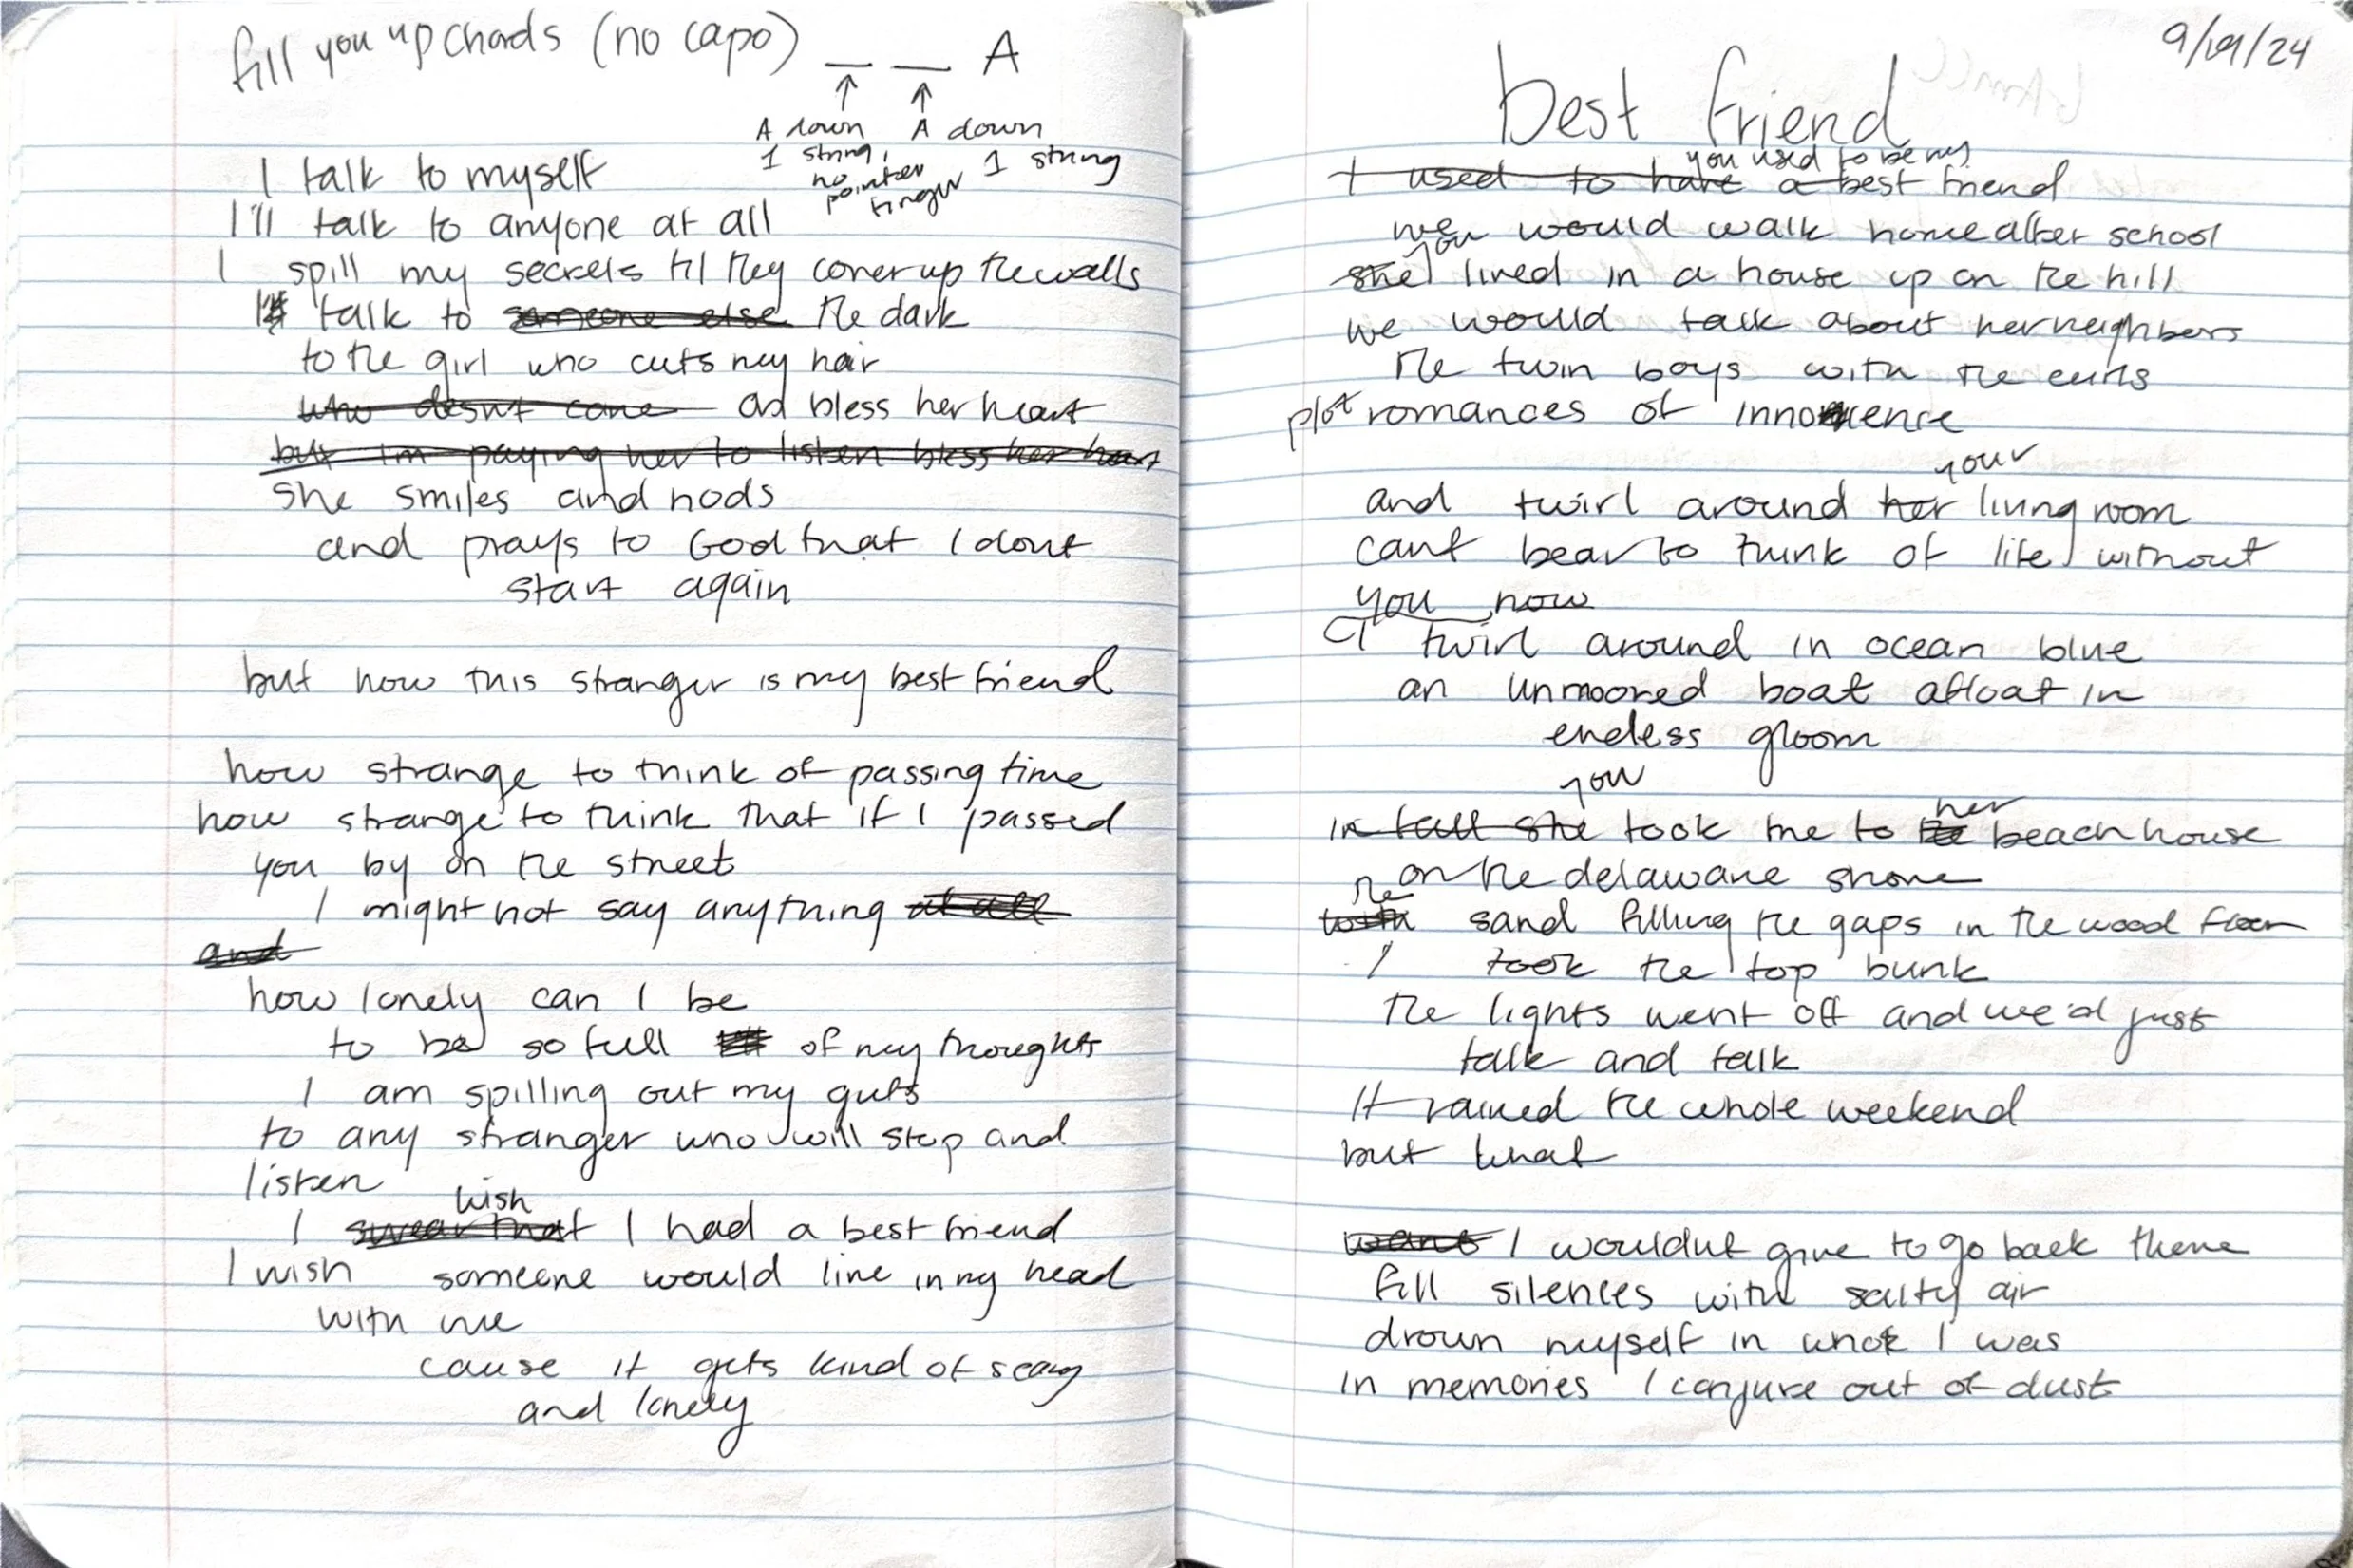 fill you up chords (no capo) _ _ A
↑ ↑
A down A down
1 string, 1 string
no
pointer
finger
I talk to myself
I'll talk to anyone at all
I spill my secrets til they cover up the walls
I talk to someone else the dark
to the girl who cuts my hair
who desnt care and bless her heart
but im paying her to listen bless her heart
she smiles and nods
and prays to God that I dont
start again
but now this stranger is my best friend
how strange to think of passing time
how strange to think that if I passed
you by on the street
I might not say anything at all
and
how lonely can I be
to be so full of my thoughts
I am spilling out my guts
to any stranger who will stop and
listen
wish
I swear that I had a best friend
I wish someone would live in my head
with me
cause it gets kind of scary
and lonely
9/19/24
best friend
you used to be my
I used to have a best friend
we would walk home after school
you
she lived in a house up on the hill
we would talk about her neighbors
the twin boys with the curls
plot romances of innocence
your
and twirl around her living room
cant bear to think of life without
you now
I twirl around in ocean blue
an unmoored boat afloat in
endless gloom
you
her
in fall she took me to the beach house
on the delaware shore
the
with sand filling the gaps in the wood floor
I took the top bunk
the lights went off and we'd just
talk and talk
It rained the whole weekend
but what
want I wouldnt give to go back there
fill silences with salty air
drown myself in who I was
in memories I conjure out of dust